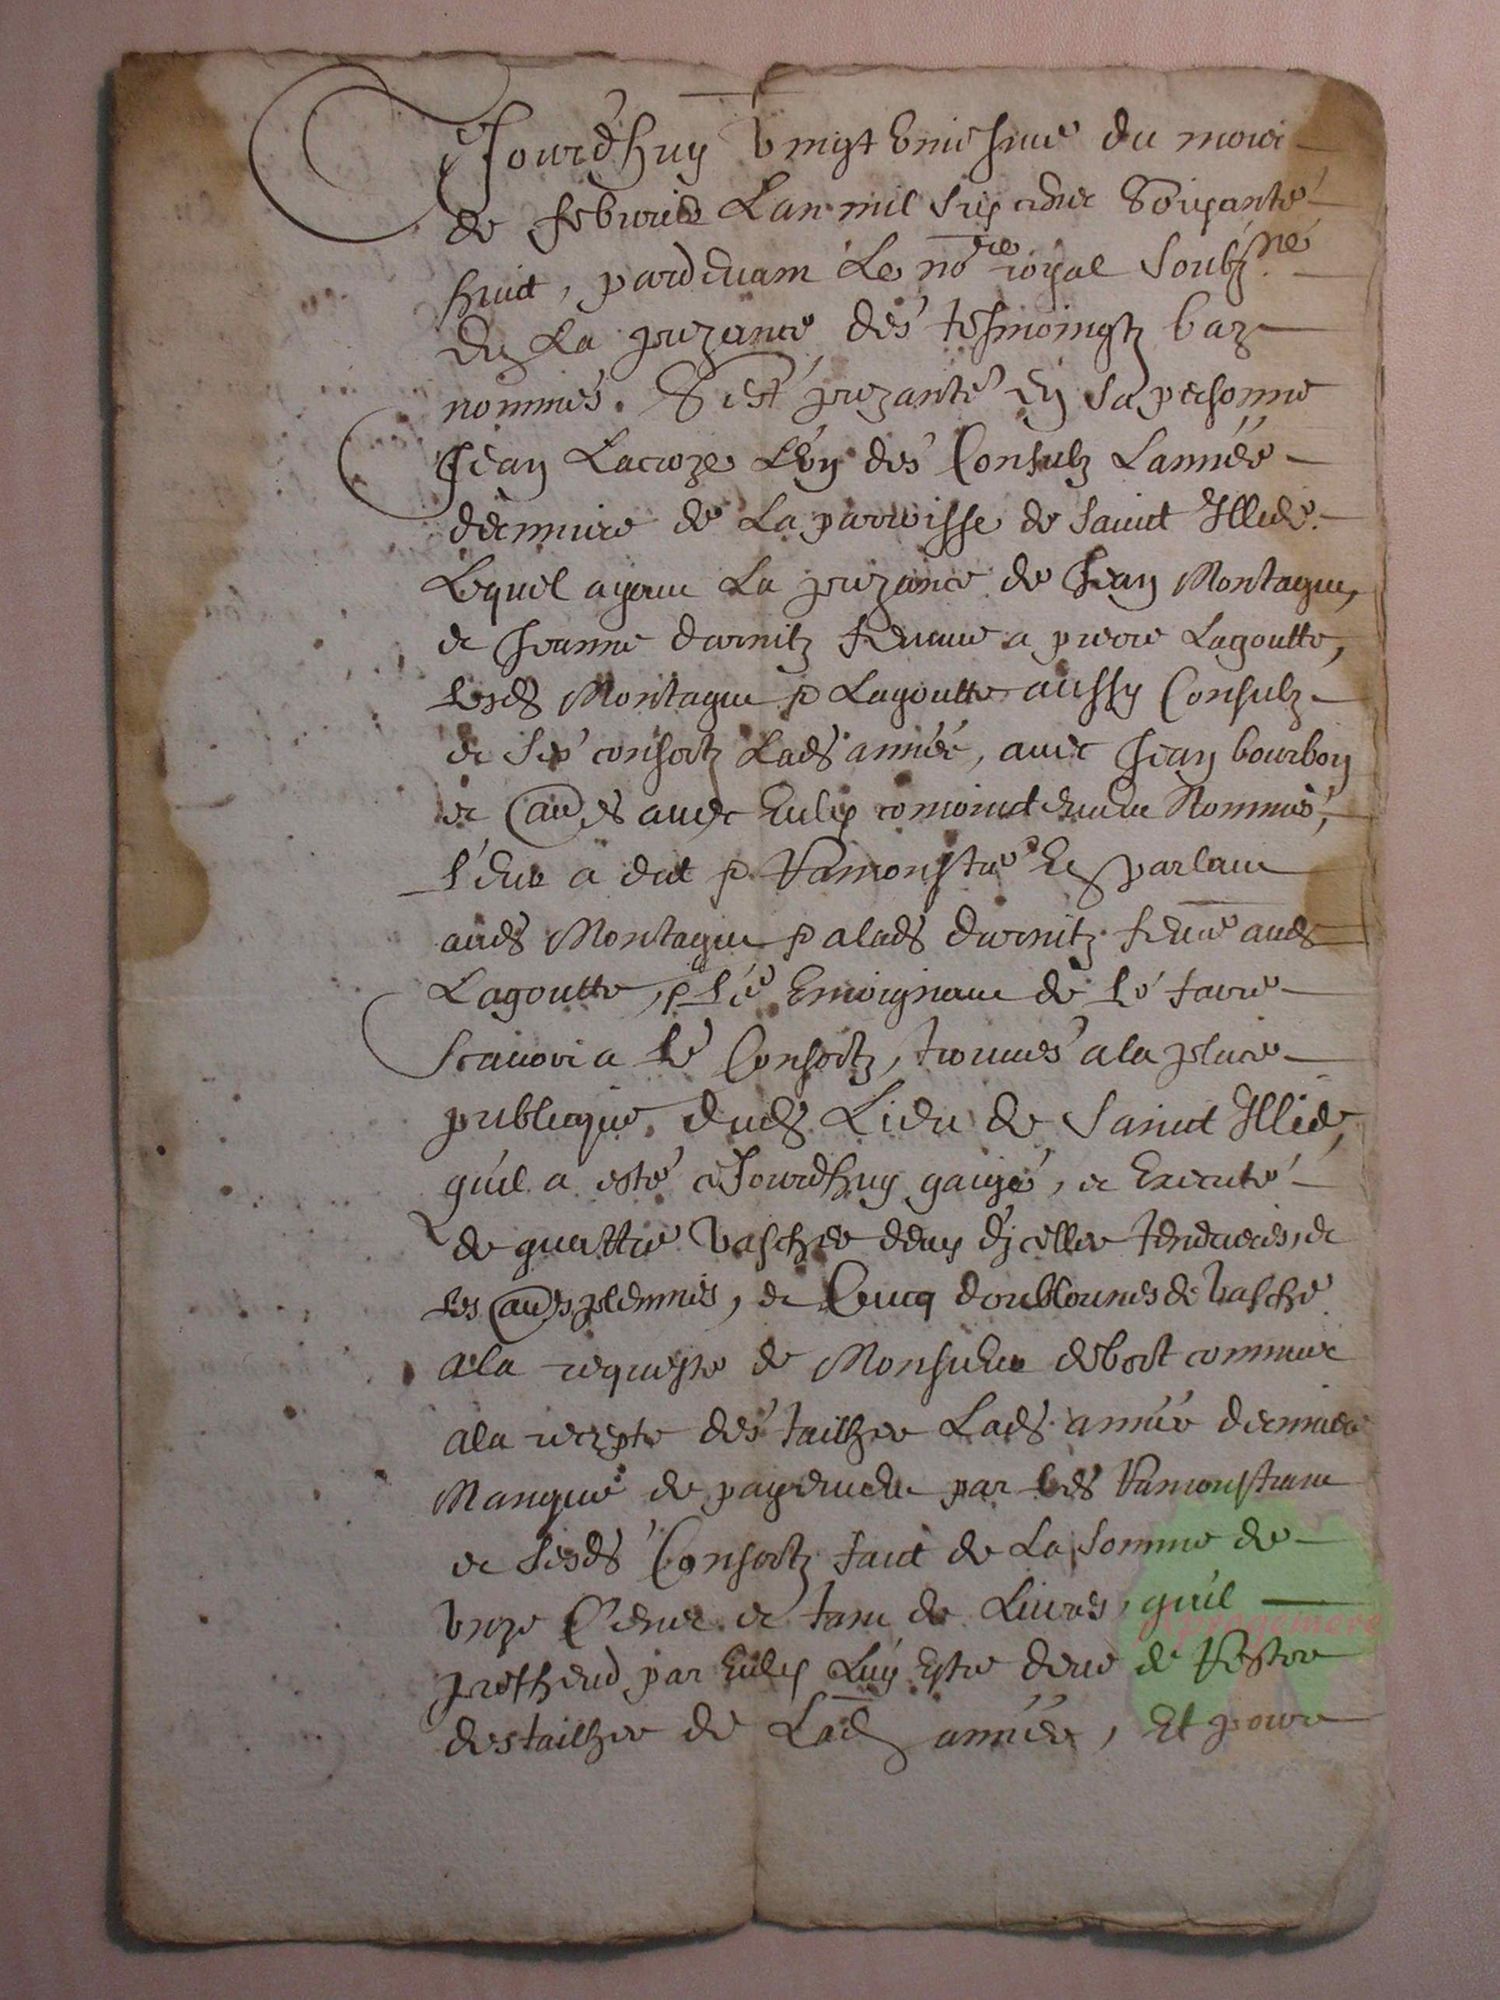 Jourdhuy vingt uniesme du mois
de febvrier Lan mil six cens soixante
huit, pardevant Le no.re royal soubz.né
En La prezance des tesmoingtz bas
nommés. S'est prezanté en sa personne
Jean Lacroze L'un des Consulz Lannée
derniere de La parroisse de Saint Illide
Lequel ayant La prezance de Jean Montague,
et Jeanne darnitz femme a pierre Lagoutte,
lesds Montague & Lagoutte aussy Consulz
et ses consortz Lads année, avec Jean bourbon
et au.es avec Eulx nommés,
Leur a dit & Ramonstré En parlant
auds Montague & alads darnitz femme auds
Lagoutte, & de le faire
scavoir a Consortz, trouvés a la place
publicque duds Lieu de Saint Illide,
qu'il a esté cejourdhuy gaigé, et Execute
de quattre vasches deux dicelles
les au.es plennes, et Cincq doublounes de vasche
a la requeste de Monsieur debort commis
a la recepte des tailhes Lads année derniere
Manque de payement par Leds Ramonstrant
et sesds Consortz faict de La somme de
unze Cens et tant de Livres, qu'il
prethend par Eulx Luy Estre deue de Reste
des tailhes de Lad année, Et pour
Apiagemore